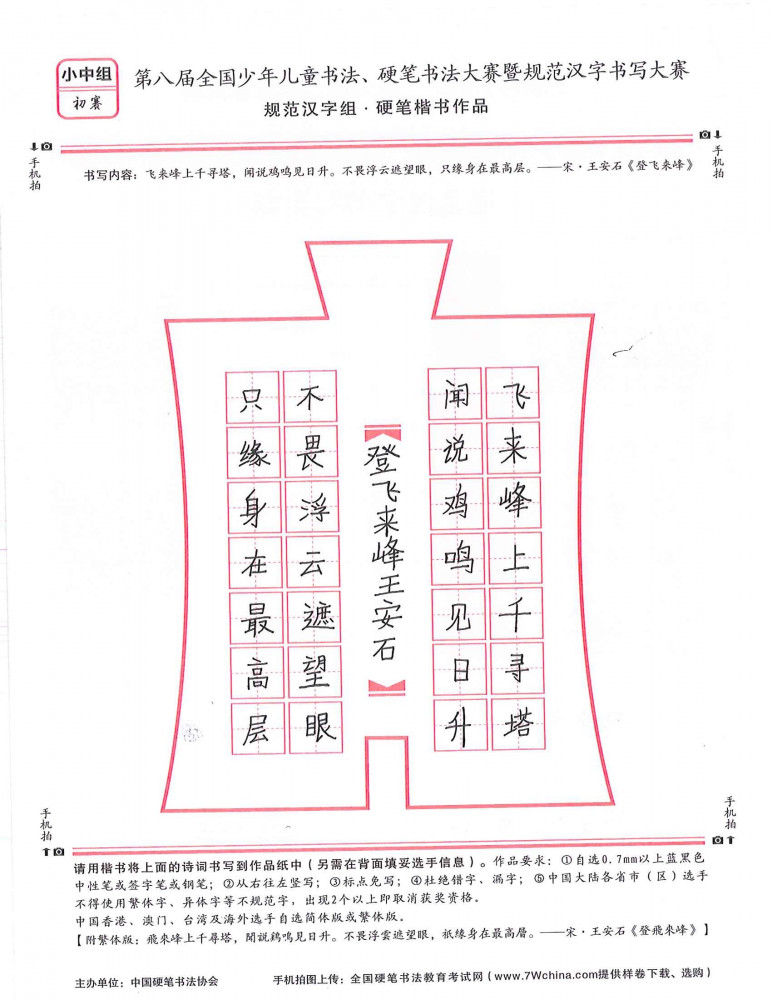 小中组
初赛
第八届全国少年儿童书法、硬笔书法大赛暨规范汉字书写大赛
规范汉字组·硬笔楷书作品
手机拍
手机拍
书写内容：飞来峰上千寻塔，闻说鸡鸣见日升。不畏浮云遮望眼，只缘身在最高层。——宋·王安石《登飞来峰》
飞来峰上千寻塔
闻说鸡鸣见日升
登飞来峰王安石
不畏浮云遮望眼
只缘身在最高层
手机拍
手机拍
请用楷书将上面的诗词书写到作品纸中（另需在背面填妥选手信息）。作品要求：①自选0.7mm以上蓝黑色
中性笔或签字笔或钢笔；②从右往左竖写；③标点免写；④杜绝错字、漏字；⑤中国大陆各省市（区）选手
不得使用繁体字、异体字等不规范字，出现2个以上即取消获奖资格。
中国香港、澳门、台湾及海外选手自选简体版或繁体版。
【附繁体版：飛來峰上千尋塔，聞說鷄鳴見日升。不畏浮雲遮望眼，祇緣身在最高層。——宋·王安石《登飛來峰》】
主办单位：中国硬笔书法协会
手机拍图上传：全国硬笔书法教育考试网（www.7Wchina.com提供样卷下载、选购）